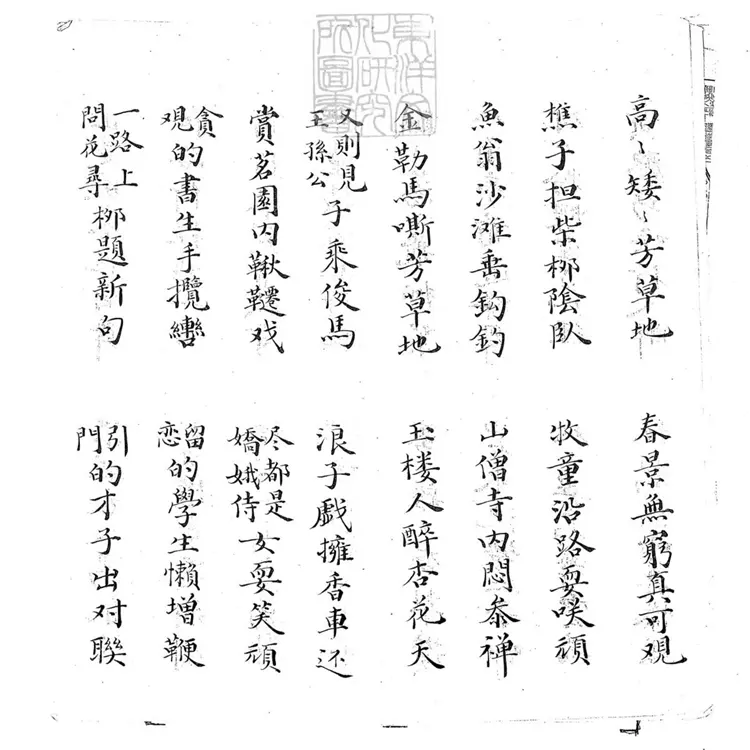 高〻矮〻芳草地 春景無窮真可覌
樵子担柴桞陰臥 牧童沿路耍咲頑
魚翁沙滩垂鈎釣 山僧寺内悶叅禅
金勒馬嘶芳草地 玉楼人醉杏花天
又則見王孫公子乘俊馬 浪子戯擁香車还
賞茗園内鞦韆戏 尽都是嬌娥侍女耍笑頑
貪覌的書生手攬轡 留恋的學生懶增鞭
一路上問花尋桞題新句 引門的才子出对聯